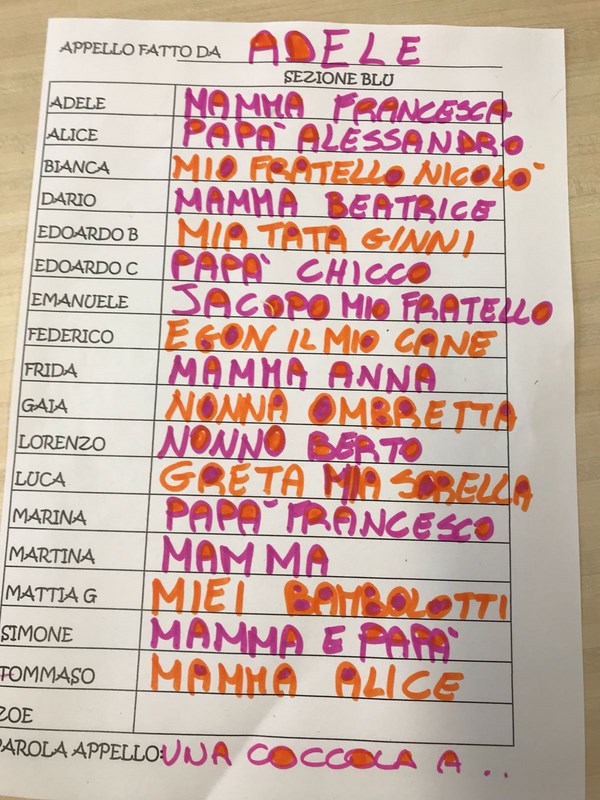 APPELLO FATTO DA ADELE
SEZIONE BLU
ADELE MAMMA FRANCESCA
ALICE PAPA' ALESSANDRO
BIANCA MIO FRATELLO NICOLO'
DARIO MAMMA BEATRICE
EDOARDO B MIA TATA GINNI
EDOARDO C PAPA' CHICCO
EMANUELE JACOPO MIO FRATELLO
FEDERICO EGON IL MIO CANE
FRIDA MAMMA ANNA
GAIA NONNA OMBRETTA
LORENZO NONNO BERTO
LUCA GRETA MIA SORELLA
MARINA PAPA' FRANCESCO
MARTINA MAMMA
MATTIA G MIEI BAMBOLOTTI
SIMONE MAMMA E PAPA'
TOMMASO MAMMA ALICE
ZOE
PAROLA APPELLO: UNA COCCOLA A ..